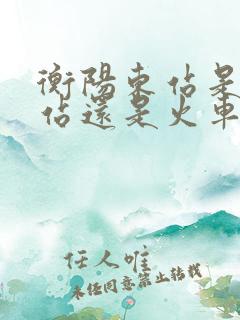 衡陽東佔是
佔還是火車
任人唯
未经同意禁止转载